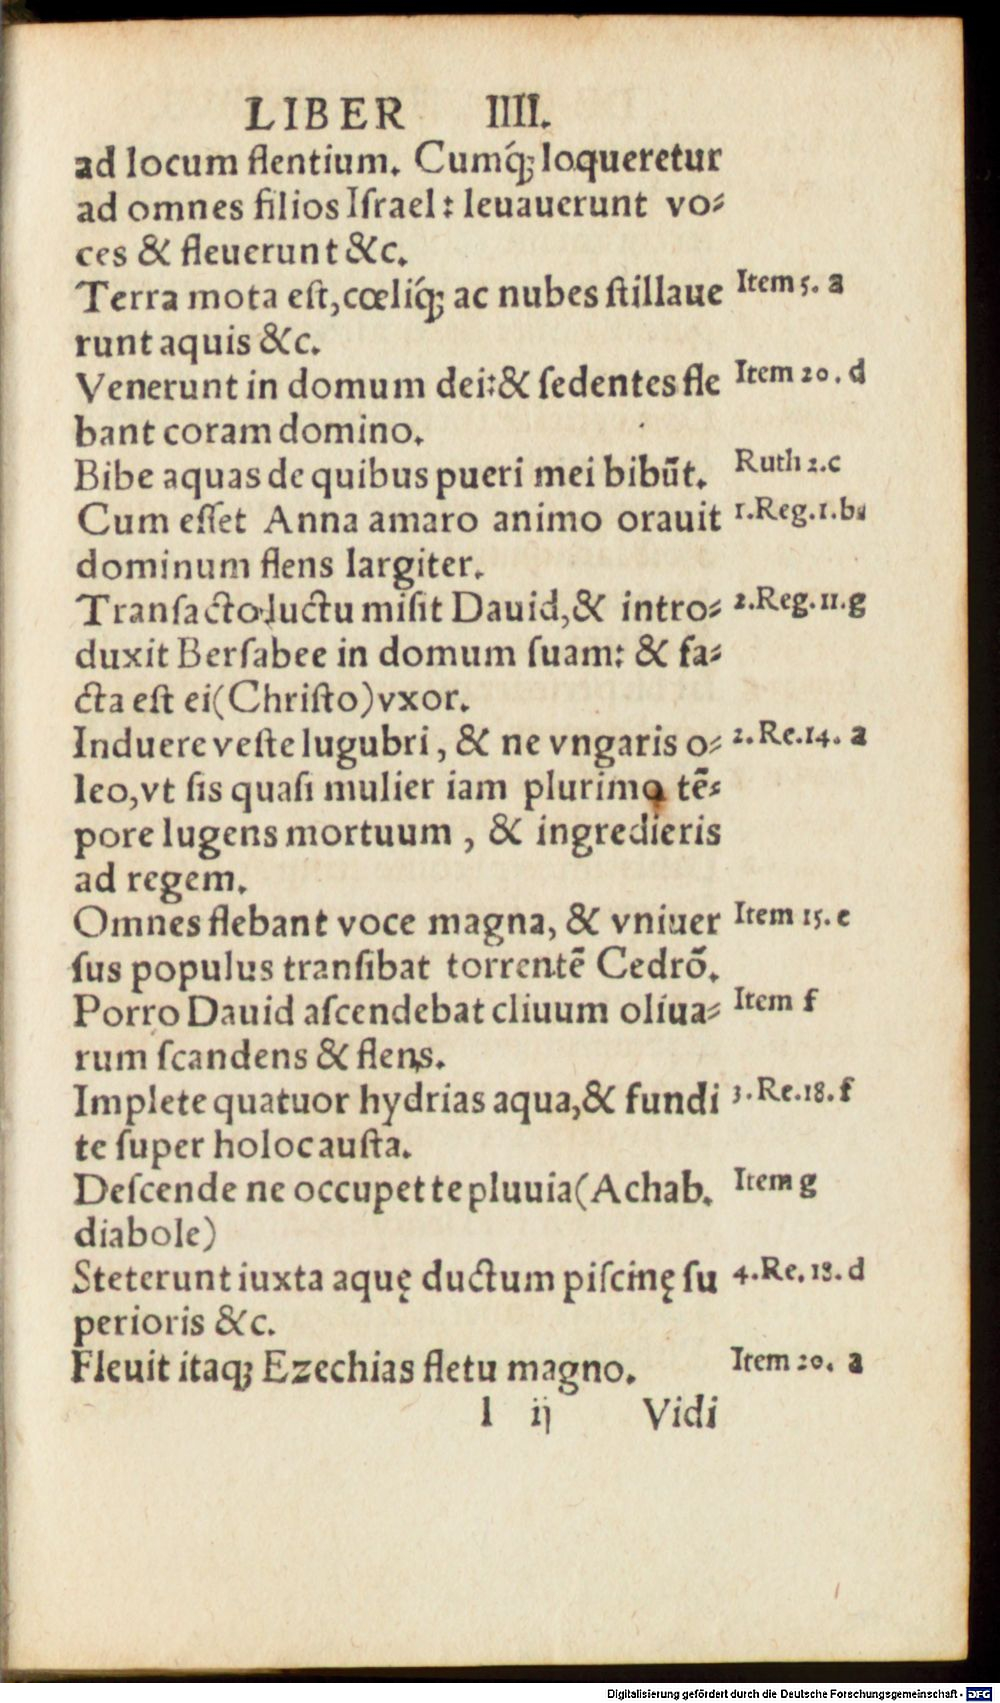 LIBER IIII.
ad locum flentium. Cumq́; loqueretur
ad omnes filios Iſrael: leuauerunt vo⸗
ces & fleuerunt &c.
Terra mota eſt, cœliq́; ac nubes ſtillaue Item 5. a
runt aquis &c.
Venerunt in domum dei: & ſedentes fle Item 20. d
bant coram domino.
Bibe aquas de quibus pueri mei bibũt. Ruth 2. c
Cum eſſet Anna amaro animo orauit 1. Reg. 1. b
dominum flens largiter.
Tranſacto luctu miſit Dauid, & intro⸗ 2. Reg. 11. g
duxit Berſabee in domum ſuam: & fa⸗
cta eſt ei (Chriſto) vxor.
Induere veſte lugubri, & ne vngaris o⸗ 2. Re. 14. a
leo, vt ſis quaſi mulier iam plurimo tẽ⸗
pore lugens mortuum, & ingredieris
ad regem.
Omnes flebant voce magna, & vniuer Item 15. e
ſus populus tranſibat torrentẽ Cedrõ.
Porro Dauid aſcendebat cliuum oliua⸗ Item f
rum ſcandens & flens.
Implete quatuor hydrias aqua, & fundi 3. Re. 18. f
te ſuper holocauſta.
Deſcende ne occupet te pluuia (Achab. Item g
diabole)
Steterunt iuxta aquę ductum piſcinę ſu 4. Re. 18. d
perioris &c.
Fleuit itaq; Ezechias fletu magno. Item 20. a
l ij Vidi
Digitalisierung gefördert durch die Deutsche Forschungsgemeinschaft - DFG